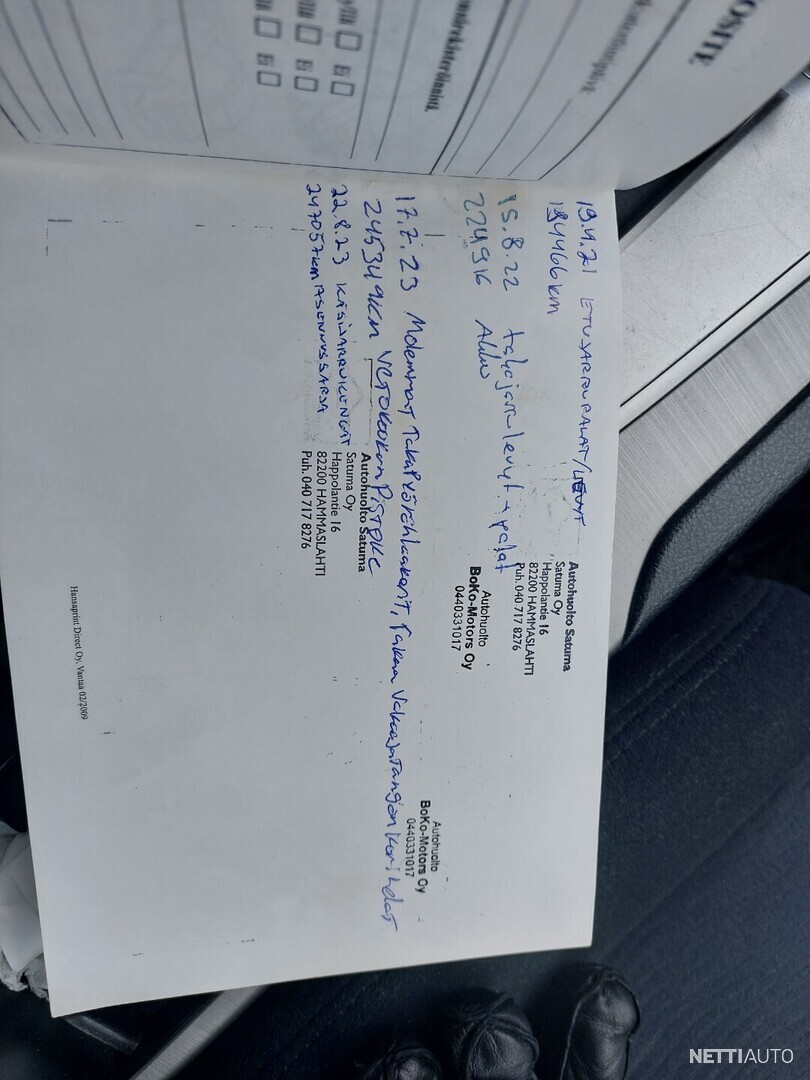 OSITE
19.4.21 ETUJARRUPALAT/LEVYT
184466km
Autohuolto Satuma
Satuma Oy
Happolantie 16
82200 HAMMASLAHTI
Puh. 040 717 8276
15.8.22 takajarrulevyt + palat
224916 Akku
Autohuolto
BoKo-Motors Oy
0440331017
17.7.23 Molemmat Takapyöränlaakerit, Takaa Vakaajatangon
245349km VETOKOUKUN PISTOKE
Autohuolto
BoKo-Motors Oy
0440331017
22.8.23 KÄSIJARRUKENGÄT
247057km ASENNUSSARJA
Autohuolto Satuma
Satuma Oy
Happolantie 16
82200 HAMMASLAHTI
Puh. 040 717 8276
Hansaprint Direct Oy, Vantaa 02/2009
NETTIAUTO